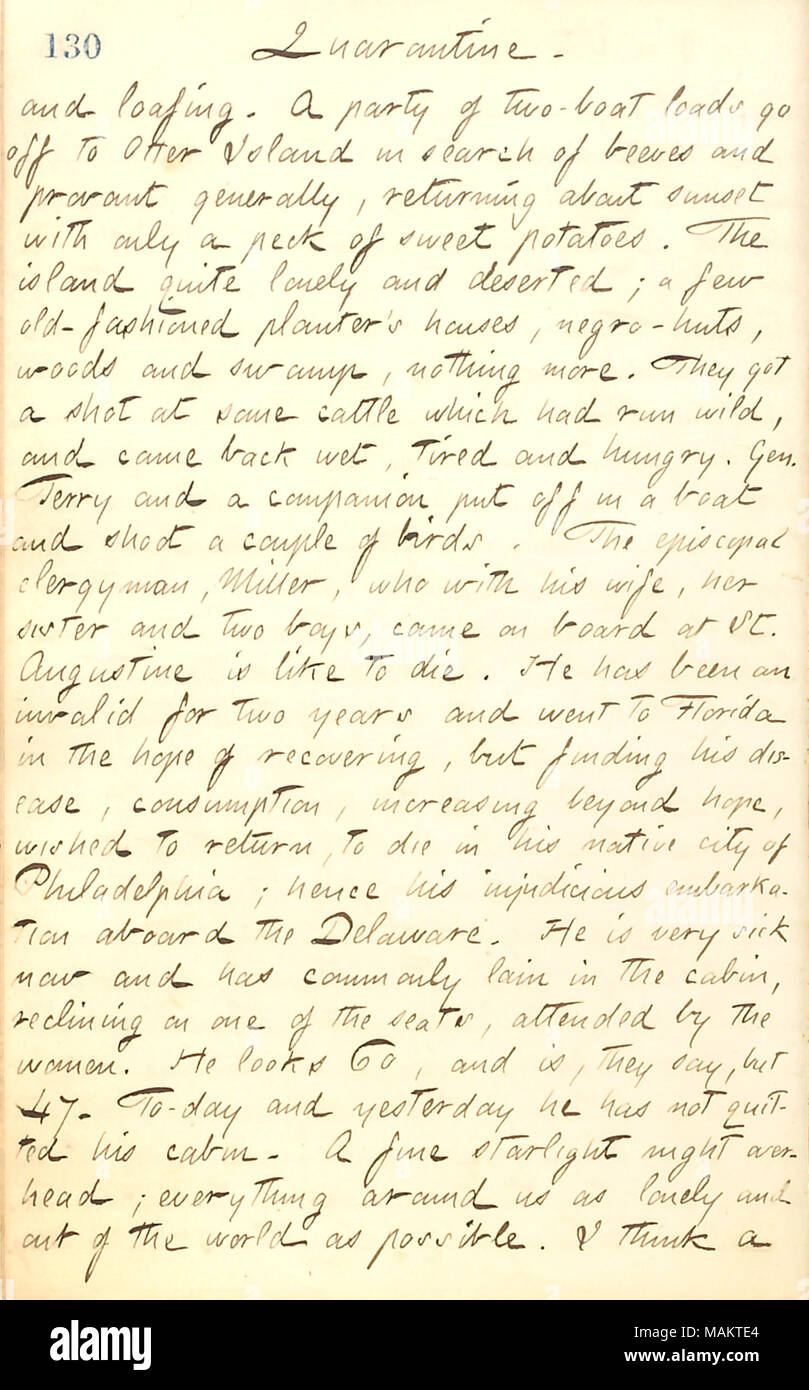 130
Quarantine.
and loafing. A party of two-boat loads go
off to Otter Island in search of beeves and
provant generally, returning about sunset
with only a peck of sweet potatoes. The
island quite lonely and deserted; a few
old-fashioned planter's houses, negro-huts,
woods and swamp, nothing more. They got
a shot at some cattle which had run wild,
and came back wet, tired and hungry. Gen.
Terry and a companion put off in a boat
and shoot a couple of birds. The episcopal
clergyman, Miller, who with his wife, her
sister and two boys, came on board at St.
Augustine is like to die. He has been an
invalid for two years and went to Florida
in the hope of recovering, but finding his dis-
ease, consumption, increasing beyond hope,
wished to return, to die in his native city of
Philadelphia; hence his injudicious embarka-
tion aboard the Delaware. He is very sick
now and has commonly lain in the cabin,
reclining on one of the seats, attended by the
women. He looks 60, and is, they say, but
47. To-day and yesterday he has not quit-
ted his cabin. A fine starlight night over-
head; everything around us as lonely and
out of the world as possible. I think a
alamy
Image ID: MAKTE4
www.alamy.com